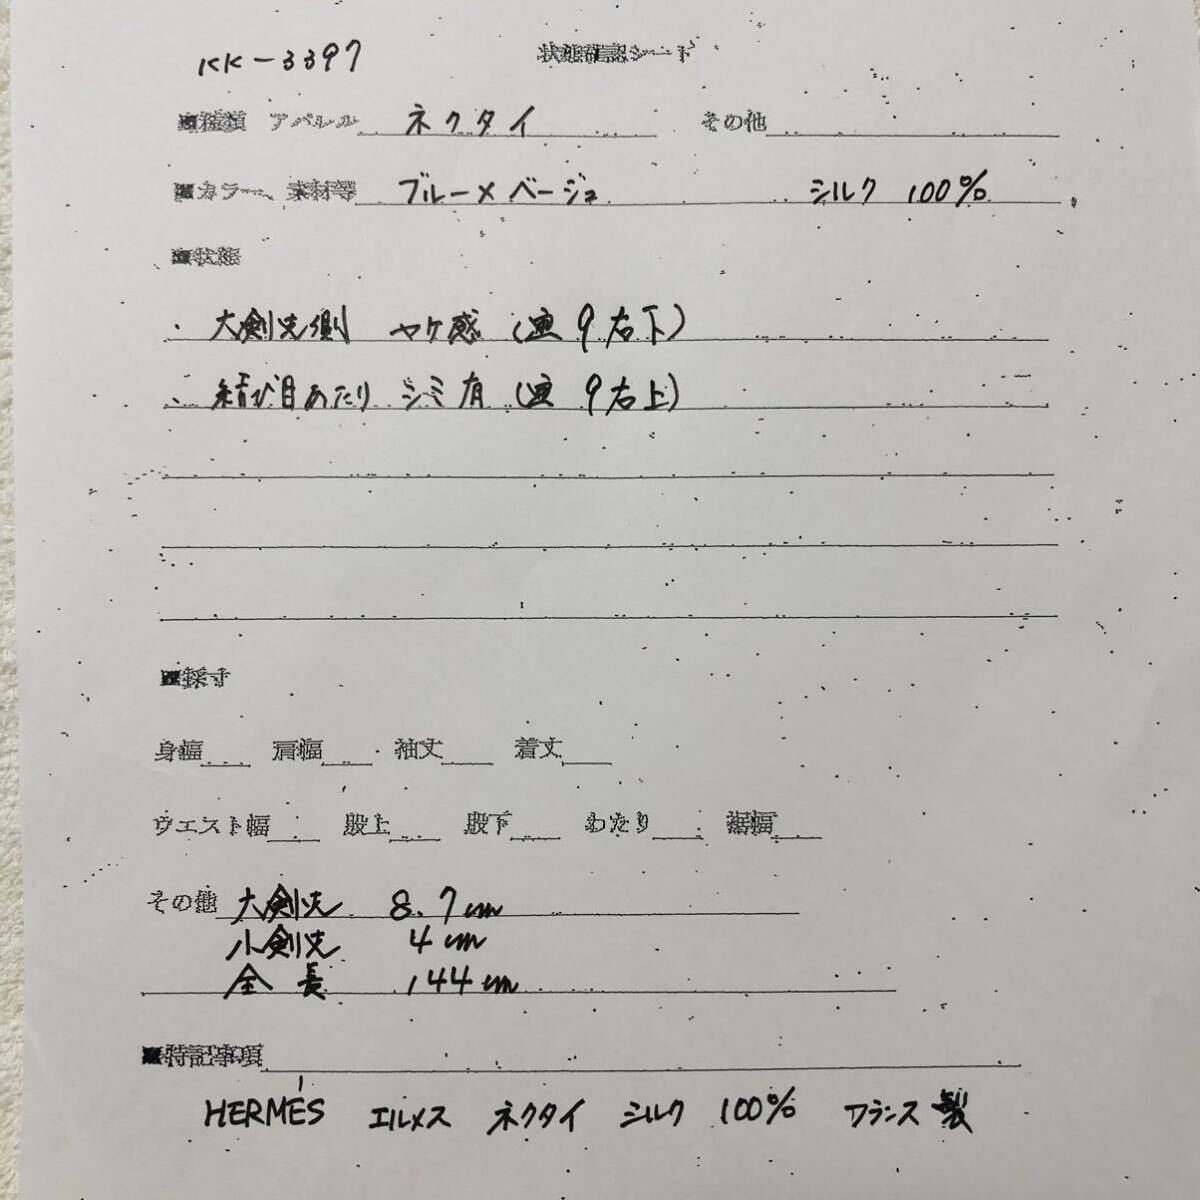 KK-3397
状態確認シート
■種類 アパレル ネクタイ その他
■カラー、素材等 ブルー×ベージュ シルク 100%
■状態
・大剣先側 ヤケ感(画9右下)
・結び目あたり シミ有(画9右上)
■採寸
身幅 肩幅 袖丈 着丈
ウエスト幅 股上 股下 わたり 裾幅
その他 大剣先 8.7cm
小剣先 4cm
全長 144cm
■特記事項
HERMÉS エルメス ネクタイ シルク 100% フランス製